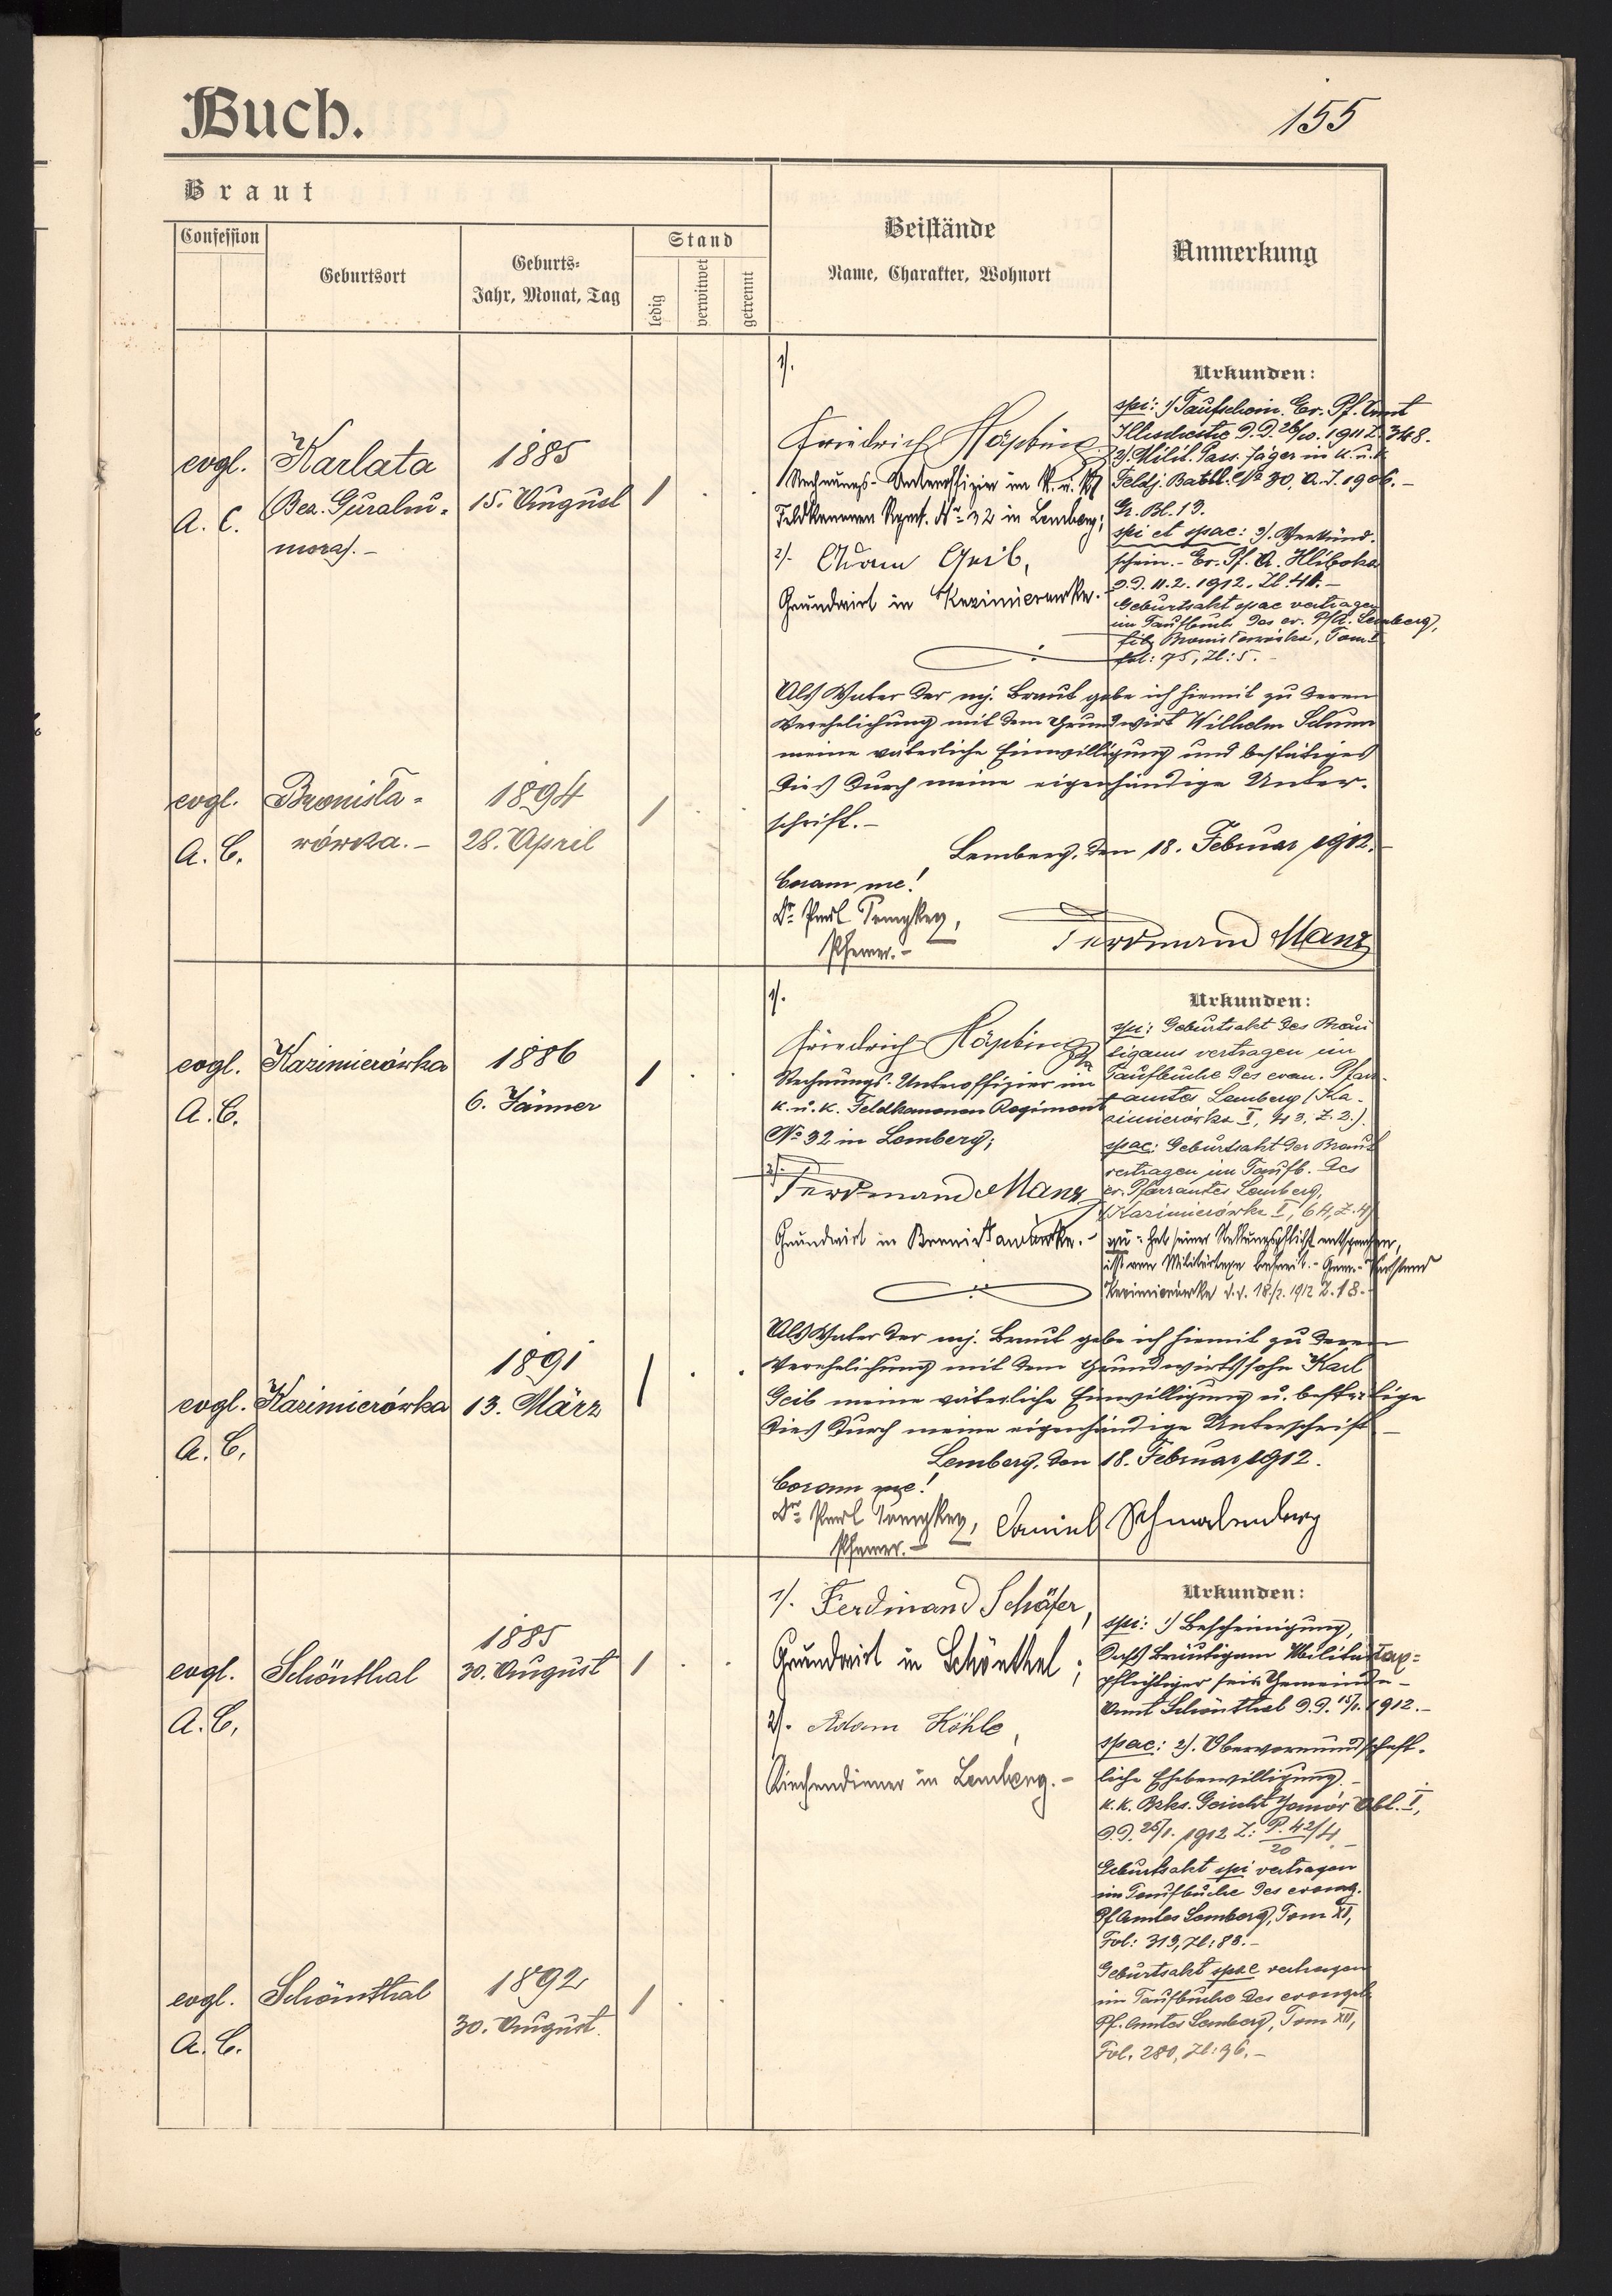 Buch.
155
Braut
Confession
Geburtsort
Geburts-
Jahr, Monat, Tag
Stand
ledig
verwitwet
getrennt
Beistände
Name, Charakter, Wohnort
Anmerkung
evgl.
A. C.
Karlata
(Bez. Gurahu-
mora).-
1885
15. August
1
1).
Friedrich
Rechnungs-Unteroffizier im k. u. k.
Feldkanonen Regmt. No 32 in Lemberg;
2). Adam Geib,
Grundwirt in Kazimierówka.
Urkunden:
spi: 1) Taufschein. Ev. Pf. Amt
d.d. 26/10. 1911 Z. 348.
2). Milit. Pass. Jäger im k. u. k.
Feldj. Batll. No 30. A. J. 1906.-
Gr. Bl. 19.
spi et spae: 3). Verkünd.
schein.- Ev. Pf. A. Hliboka
d.d. 11.2. 1912. Zl. 44.-
Geburtsakt spae vertragen
im Taufbuch des ev. Pfa. Lemberg,
Tom I
fol: 75, Zl: 5.-
evgl.
A. C.
Bronisła-
wówka.-
1894
28. April
1
Als Vater der mj. Braut gebe ich hiemit zu deren
Verehelichung mit dem Grundwirt Wilhelm
meine väterliche Einwilligung und bestätige
dies durch meine eigenhändige Unter-
schrift.-
Lemberg, den 18. Februar 1912.-
Coram me!
Dr. Paul
Pfarrer.-
Ferdinand Manz
evgl.
A. C.
Kazimierówka
1886
6. Jänner
1
1).
Friedrich
Rechnungs-Unteroffizier im
k. u. k. Feldkanonen Regiment
No 32 in Lemberg;
2).
Ferdinand Manz
Grundwirt in Bronisławówka.-
Urkunden:
spi: Geburtsakt des Bräu
tigams vertragen im
Taufbuche des evan. Pfarr-
amtes Lemberg (Ka-
zimierówka I, 43, Z. 2.).
spae: Geburtsakt der Braut
vertragen im Taufb. des
ev. Pfarramtes Lemberg,
(Kazimierówka I, 64, Z. 4)
spi- hat seiner Stellungspflicht entsprochen,
ist von Militärtaxe befreit.- Gem.-Vorstand
Kazimierówka d.d. 18/2. 1912 Z. 18.-
evgl.
A. C.
Kazimierówka
1891
13. März
1
Als Vater der mj. Braut gebe ich hiemit zu deren
Verehelichung mit dem Grundwirthssohn Karl
Geib meine väterliche Einwilligung u. bestätige
dies durch meine eigenhändige Unterschrift
Lemberg, den 18. Februar 1912.
Coram me!
Dr. Paul
Pfarrer.-
Daniel Schmalenberg
evgl.
A. C.
Schönthal
1885
30. August
1
1). Ferdinand Schäfer,
Grundwirt in Schönthal;
2). Adam Köhle,
Kirchendiener in Lemberg.-
Urkunden:
spi: 1) Bescheinigung,
dass Bräutigam Militärtax-
pflichtiger sei. Gemeinde-
Amt Schönthal d.d. 15/1. 1912.-
spae: 2). Obervormundschaft-
liche Ehebewilligung.-
k. k. Bzks. Gericht Janów Abt. I,
d.d. 25/1. 1912 Z: P. 42/4
20
Geburtsakt spi vertragen
im Taufbuche des evang.
Pf. Amtes Lemberg, Tom XI,
Fol: 313, Zl: 83.-
Geburtsakt spae vertragen
im Taufbuche des evangel.
Pf. Amtes Lemberg, Tom XII,
Fol. 280, Zl: 96.-
evgl.
A. C.
Schönthal
1892
30. August.
1